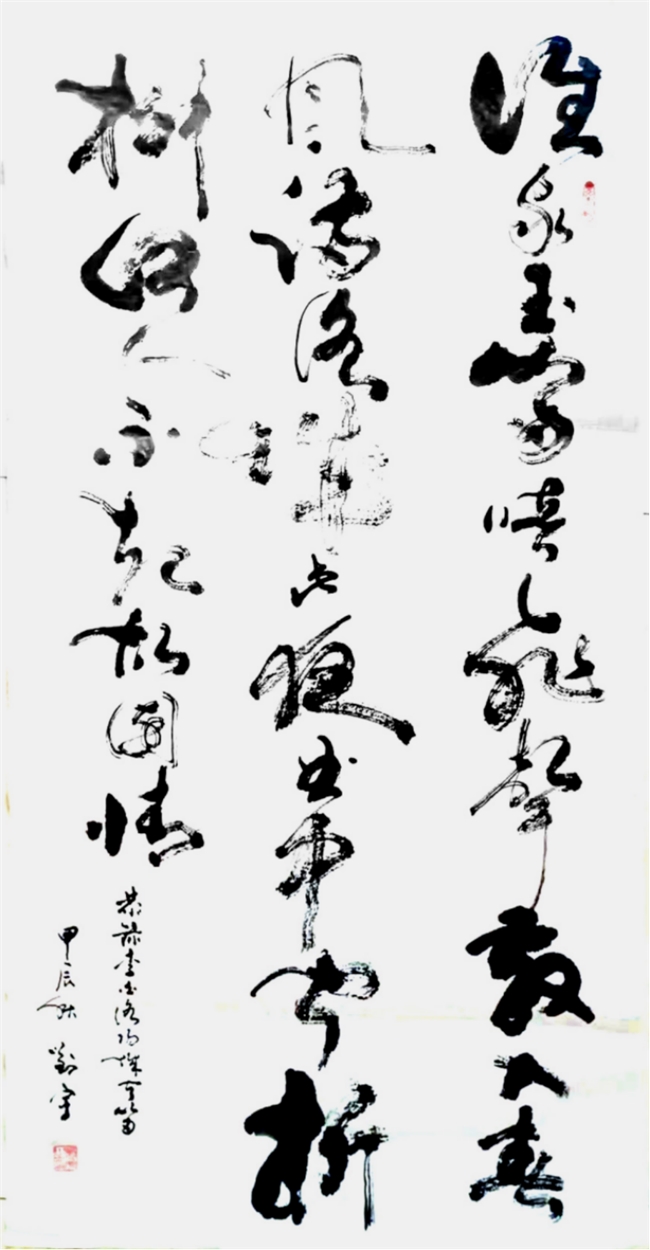 誰家玉笛暗飛聲散入春
風滿洛城此夜曲中聞折
柳何人不起故園情
恭錄李白洛陽城聞笛
甲辰秋 劉宇